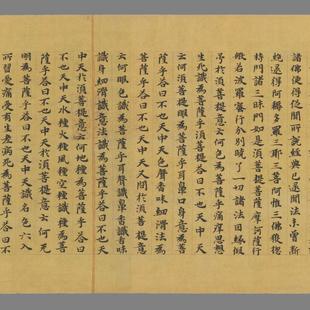 諸佛使得從聞所說經聞已還聞法未曾斷
絕還得阿耨多羅三耶三菩阿惟三佛復還
持門諸三昧門如是須菩提菩薩摩訶薩行
般若波羅蜜行分別曉了一切諸法因緣假
号於須菩提意云何色為菩薩乎痛痒思想
生死識為菩薩乎答曰不也天中天
云何須菩提眼為菩薩乎耳鼻口身意為菩
薩乎答曰不也天中天色聲香味細滑法為
菩薩乎答曰不也天中天又問於須菩提意
云何眼色識為菩薩乎耳聲識鼻香識舌味
識身細滑識意法識為菩薩乎答曰不也天
中天於須菩提意云何地種為菩薩乎答曰
不也天中天水種火種風種空種識種為菩
薩乎答曰不也天中天於須菩提意云何无
明為菩薩乎答曰不也天中天識名色六入
所習愛痛受有生老病死為菩薩乎答曰不